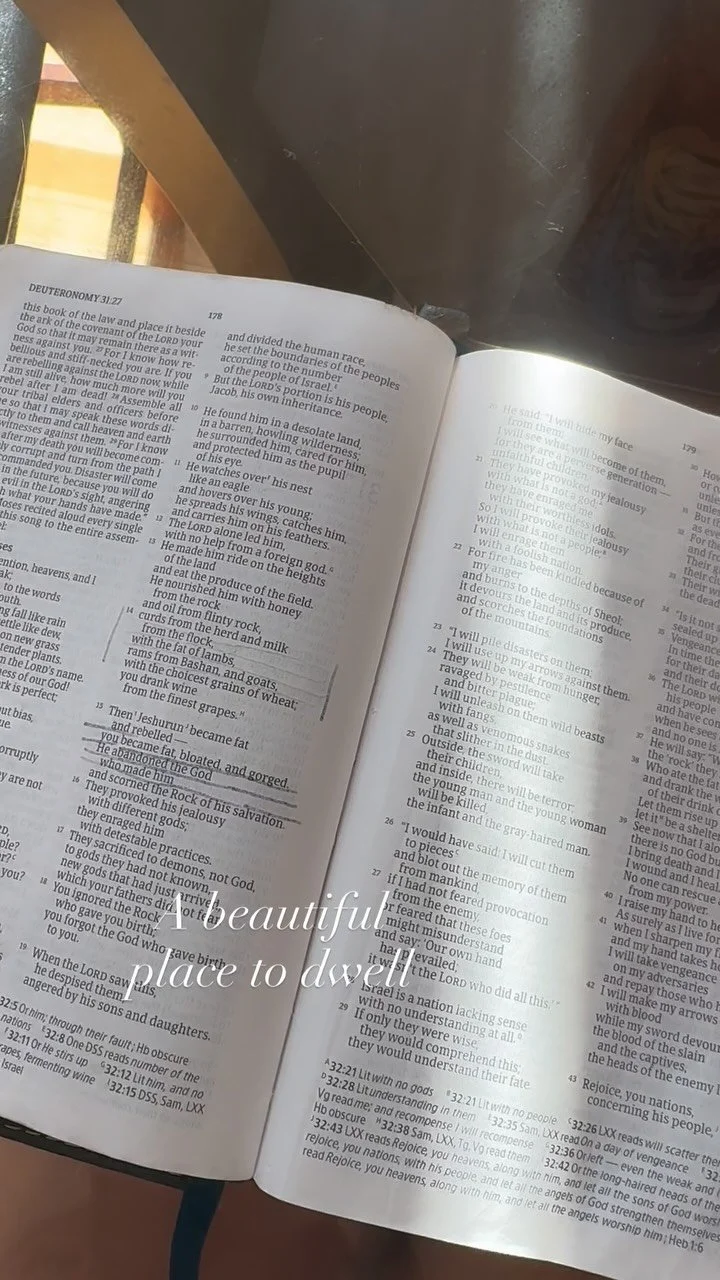 DEUTERONOMY 31:27
178
this book of the law and place it beside
the ark of the covenant of the LORD your
God so that it may remain there as a wit-
ness against you. 27 For I know how re-
bellious and stiff-necked you are. If you
are rebelling against the LORD now, while
I am still alive, how much more will you
rebel after I am dead! 28 Assemble all
your tribal elders and officers before
me so that I may speak these words di-
ctly to them and call heaven and earth
witnesses against them. 29 For I know
after my death you will become com-
ly corrupt and turn from the path I
commanded you. Disaster will come
in the future, because you will do
evil in the LORD's sight, angering
h what your hands have made
Moses recited aloud every single
this song to the entire assem-
el:
ses
ention, heavens, and I
ak;
to the words
outh.
ng fall like rain
ettle like dew,
on new grass
tender plants.
m the LORD's name.
ness of our God!
rk is perfect;
out bias,
ue.
orruptly
ey are not
and divided the human race,
he set the boundaries of the peoples
according to the number
of the people of Israel.
9 But the LORD's portion is his people,
Jacob, his own inheritance.
10 He found him in a desolate land,
in a barren, howling wilderness;
he surrounded him, cared for him,
and protected him as the pupil
of his eye.
11 He watches over his nest
like an eagle
and hovers over his young;
he spreads his wings, catches him,
and carries him on his feathers.
12 The LORD alone led him,
with no help from a foreign god.
13 He made him ride on the heights
of the land
and eat the produce of the field.
He nourished him with honey
from the rock
and oil from flinty rock,
14 curds from the herd and milk
from the flock,
with the fat of lambs,
rams from Bashan, and goats,
with the choicest grains of wheat;
you drank wine
from the finest grapes.
15 Then Jeshurun became fat
and rebelled —
you became fat, bloated, and gorged.
He abandoned the God
who made him
and scorned the Rock of his salvation.
16 They provoked his jealousy
with different gods;
they enraged him
with detestable practices.
17 They sacrificed to demons, not God,
to gods they had not known,
new gods that had just arrived,
which your fathers did not
18 You ignored the Rock
who gave you birth;
you forgot the God who gave birth
to you.
19 When the LORD saw this,
he despised them,
angered by his sons and daughters.
32:5 Or him; through their fault; Hb obscure
nations 32:8 One DSS reads number of the
32:11 Or He stirs up 32:12 Lit him, and no
rapes, fermenting wine 32:15 DSS, Sam, LXX
Israel
179
20 He said: "I will hide my face
from them;
I will see what will become of them,
for they are a perverse generation —
unfaithful children.
21 They have provoked my jealousy
with what is not a god;
they have enraged me
with their worthless idols.
So I will provoke their jealousy
with what is not a people;
I will enrage them
with a foolish nation.
22 For fire has been kindled because of
my anger
and burns to the depths of Sheol;
it devours the land and its produce,
and scorches the foundations
of the mountains.
23 "I will pile disasters on them;
I will use up my arrows against them.
24 They will be weak from hunger,
ravaged by pestilence
and bitter plague;
I will unleash on them wild beasts
with fangs,
as well as venomous snakes
that slither in the dust.
25 Outside, the sword will take
their children,
and inside, there will be terror;
the young man and the young woman
will be killed,
the infant and the gray-haired man.
26 "I would have said: I will cut them
to pieces
and blot out the memory of them
from mankind,
27 if I had not feared provocation
from the enemy,
r feared that these foes
might misunderstand
and say: 'Our own hand
has prevailed;
it wasn't the LORD who did all this.'"
Israel is a nation lacking sense
with no understanding at all.
29 If only they were wise,
they would comprehend this;
they would understand their fate.
32:21 Lit with no gods 32:21 Lit with no people 32:26 LXX reads will scatter
32:28 Lit understanding in them 32:35 Sam, LXX read On a day of vengeance
Vg read me; and recompense I will recompense 32:36 Or left — even the weak and
Hb obscure 32:38 Sam, LXX, Tg, Vg read them 32:42 Or the long-haired heads of the
32:43 LXX reads Rejoice, you heavens, along with him, and let all the sons of God
rejoice, you nations, with his people, and let all the angels of God strengthen themselves
read Rejoice, you heavens, along with him, and let all the angels worship him; Heb 1:6
34 "Is it not
sealed up
35 Vengeance
In time the
for their da
and their
36 The LORD w
his people
and have co
when he sees
and no one is
37 He will say: "W
the 'rock' they
38 Who ate the fa
and drank the
of their drink
Let them rise up
let it be a shelter
39 See now that I alo
there is no God b
I bring death and I
I wound and I hea
No one can rescue
from my power.
40 I raise my hand to he
As surely as I live for
41 when I sharpen my f
and my hand takes h
I will take vengeance
on my adversaries
and repay those who h
42 I will make my arrows
with blood
while my sword devou
the blood of the slain
and the captives,
the heads of the enemy l
43 Rejoice, you nations,
concerning his people,
A beautiful
place to dwell